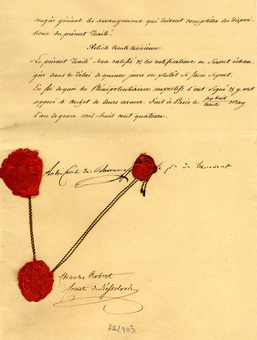 congrès général les arrangemens qui doivent compléter les dispositions
du présent Traité.
Article trente troisième.
Le présent Traité sera ratifié & les ratifications en seront échangées
dans le délai de quinze jours ou plutôt si faire se peut.
En foi de quoi les Plénipotentiaires respectifs l'ont signé & y ont
apposé le cachet de leurs armes. Fait à Paris le trente May
L'an de grace mil huit cent quatorze.
André Comte de
Charles Robert
Comte de Nesselrode